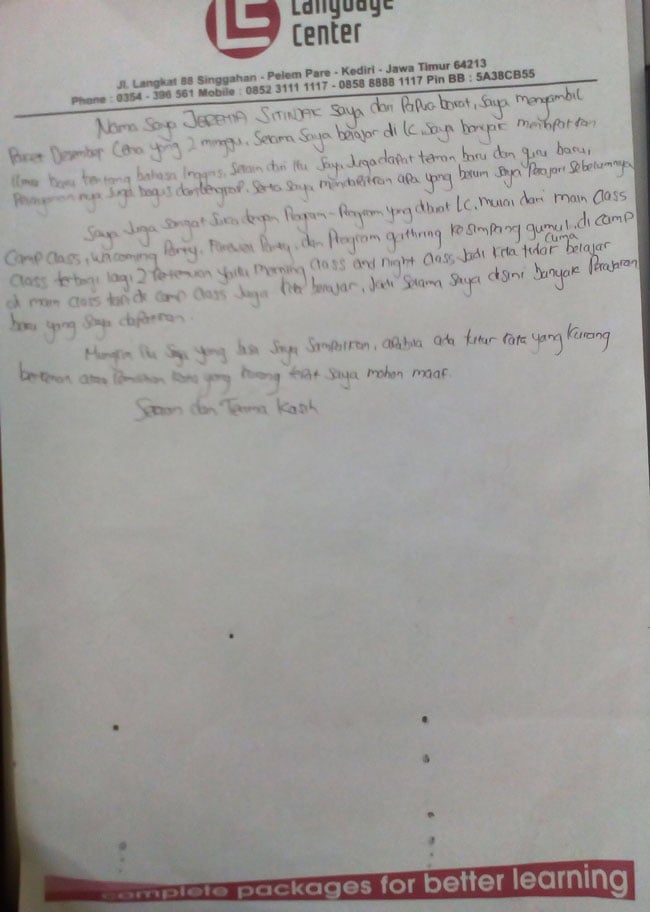 Language
Center
Jl. Langkat 88 Singgahan - Pelem Pare - Kediri - Jawa Timur 64213
Phone : 0354 - 396 561 Mobile : 0852 3111 1117 - 0858 8888 1117 Pin BB : 5A38CB55
Nama Saya JEREMIA SITINJAK saya dari Papua barat, saya mengambil
Paket Desember Ceria yang 2 minggu. Selama saya belajar di LC saya banyak mendapatkan
ilmu baru tentang bahasa Inggris, Selain dari itu saya juga dapat teman baru dan guru baru,
nya juga bagus dan lengkap. Serta saya mendapatkan apa yang belum saya Pelajari Sebelumnya
Saya Juga Sangat Suka dengan Program-Program yang dibuat LC. mulai dari main Class
Camp Class, Wlcoming Party, Farewell Party, dan Program gathring ke Simpang gumul. di camp
Class terbagi lagi 2 Pertemuan yaitu Morning Class and night Class. Jadi kita tidak cuma belajar
di main Class tapi di camp Class Juga kita belajar, Jadi Selama Saya disini banyak Pelajaran
baru yang saya dapatkan.
Mungkin itu saja yang bisa Saya Sampaikan, apabila ada tutur kata yang kurang
berkenan atau kata yang kurang saya mohon maaf.
Sekian dan Terima Kasih
complete packages for better learning